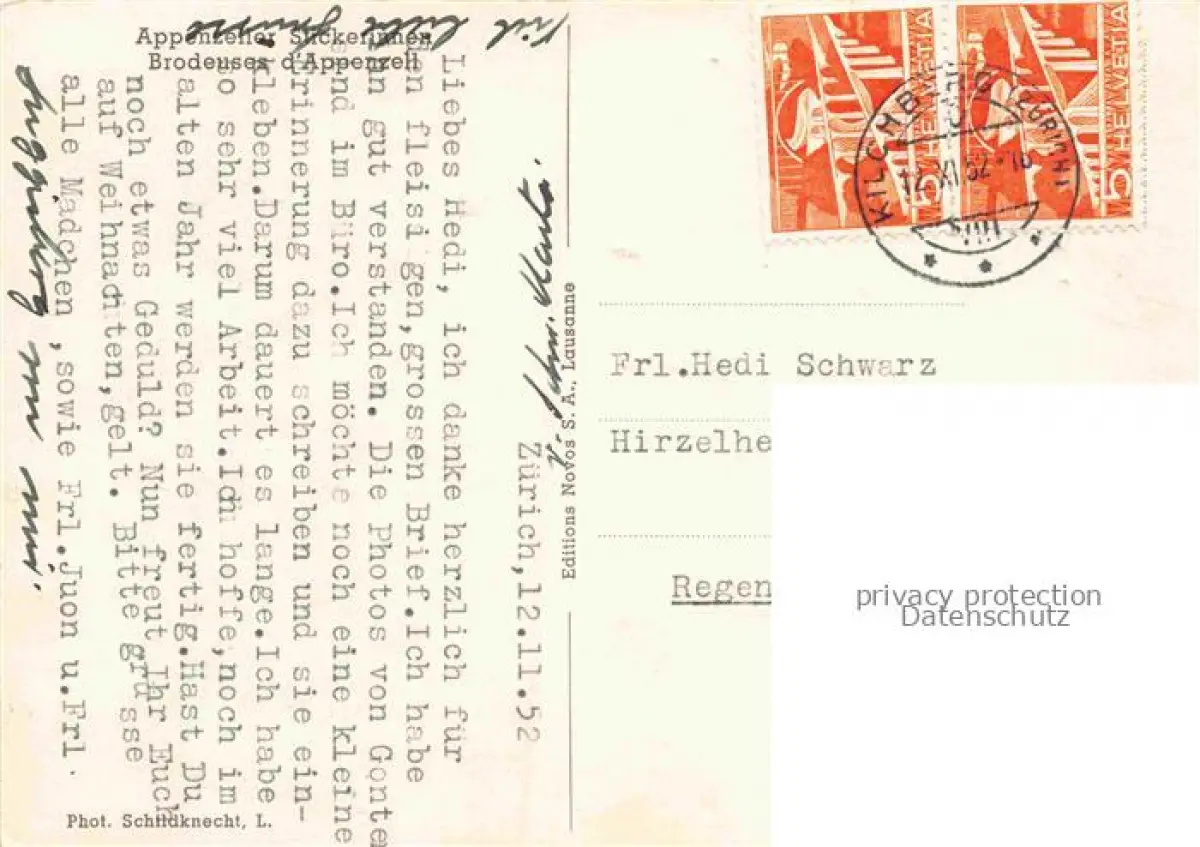 Appenzeller Stickerinnen
Brodeuses d'Appenzell
Zürich,12.11.52
Liebes Hedi, ich danke herzlich für
en fleisigen,grossen Brief.Ich habe
hn gut verstanden. Die Photos von Gonte
sind im Büro.Ich möchte noch eine kleine
Erinnerung dazu schreiben und sie ein-
kleben.Darum dauert es lange.Ich habe
so sehr viel Arbeit.Ich hoffe,noch im
alten Jahr werden sie fertig.Hast Du
noch etwas Geduld? Nun freut Ihr Euch
auf Weihnachten,gelt. Bitte grüsse
alle Mädchen,sowie Frl.Juon u.Frl.
von mir.
Phot. Schildknecht, L.
Editions Novos S. A., Lausanne
5 HELVETIA
5 HELVETIA
KILCHBERG (ZÜRICH)
12.XI.52
Frl.Hedi Schwarz
Hirzelhe
Regen
privacy protection
Datenschutz